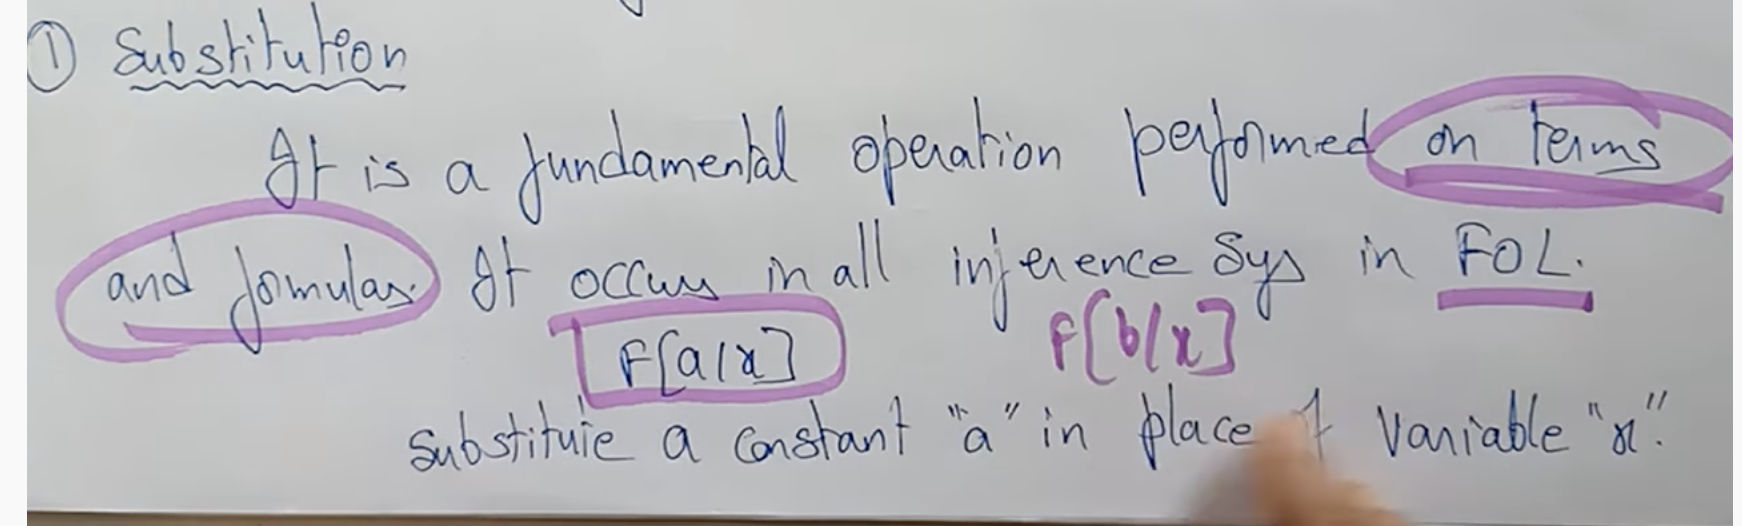 ① Substitution
It is a fundamental operation performed on terms
and formulas. It occurs in all inference Sys in FOL.
F[a/x] F[b/x]
Substitute a constant "a" in place of variable "x".